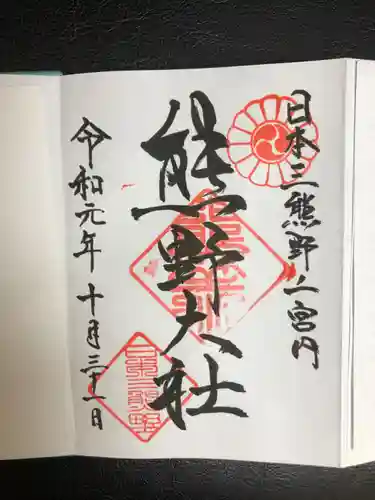 日本三熊野之宮内
熊野大社
令和元年十月三十一日